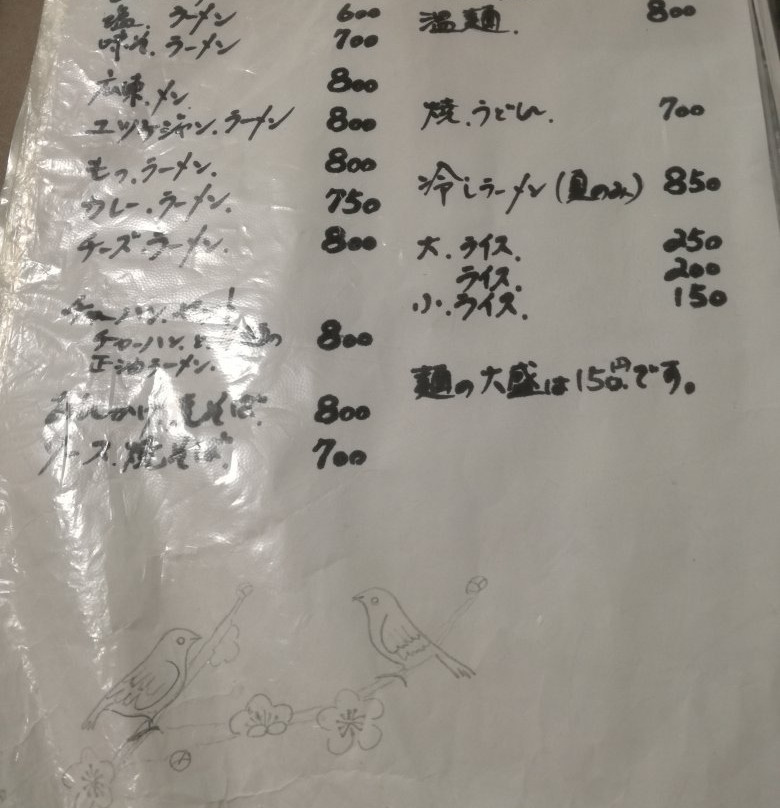 塩.ラーメン 600
味そ.ラーメン 700
広東.メン 800
ユッケジャン.ラーメン 800
もつ.ラーメン. 800
カレー.ラーメン. 750
チーズ.ラーメン. 800
チャーハン.
チャーハン.と の 800
正油ラーメン.
あんかけ.焼そば. 800
ソース.焼そば. 700
温麺. 800
焼.うどん. 700
冷しラーメン(夏のみ) 850
大.ライス. 250
ライス. 200
小.ライス. 150
麺の大盛は150円です。